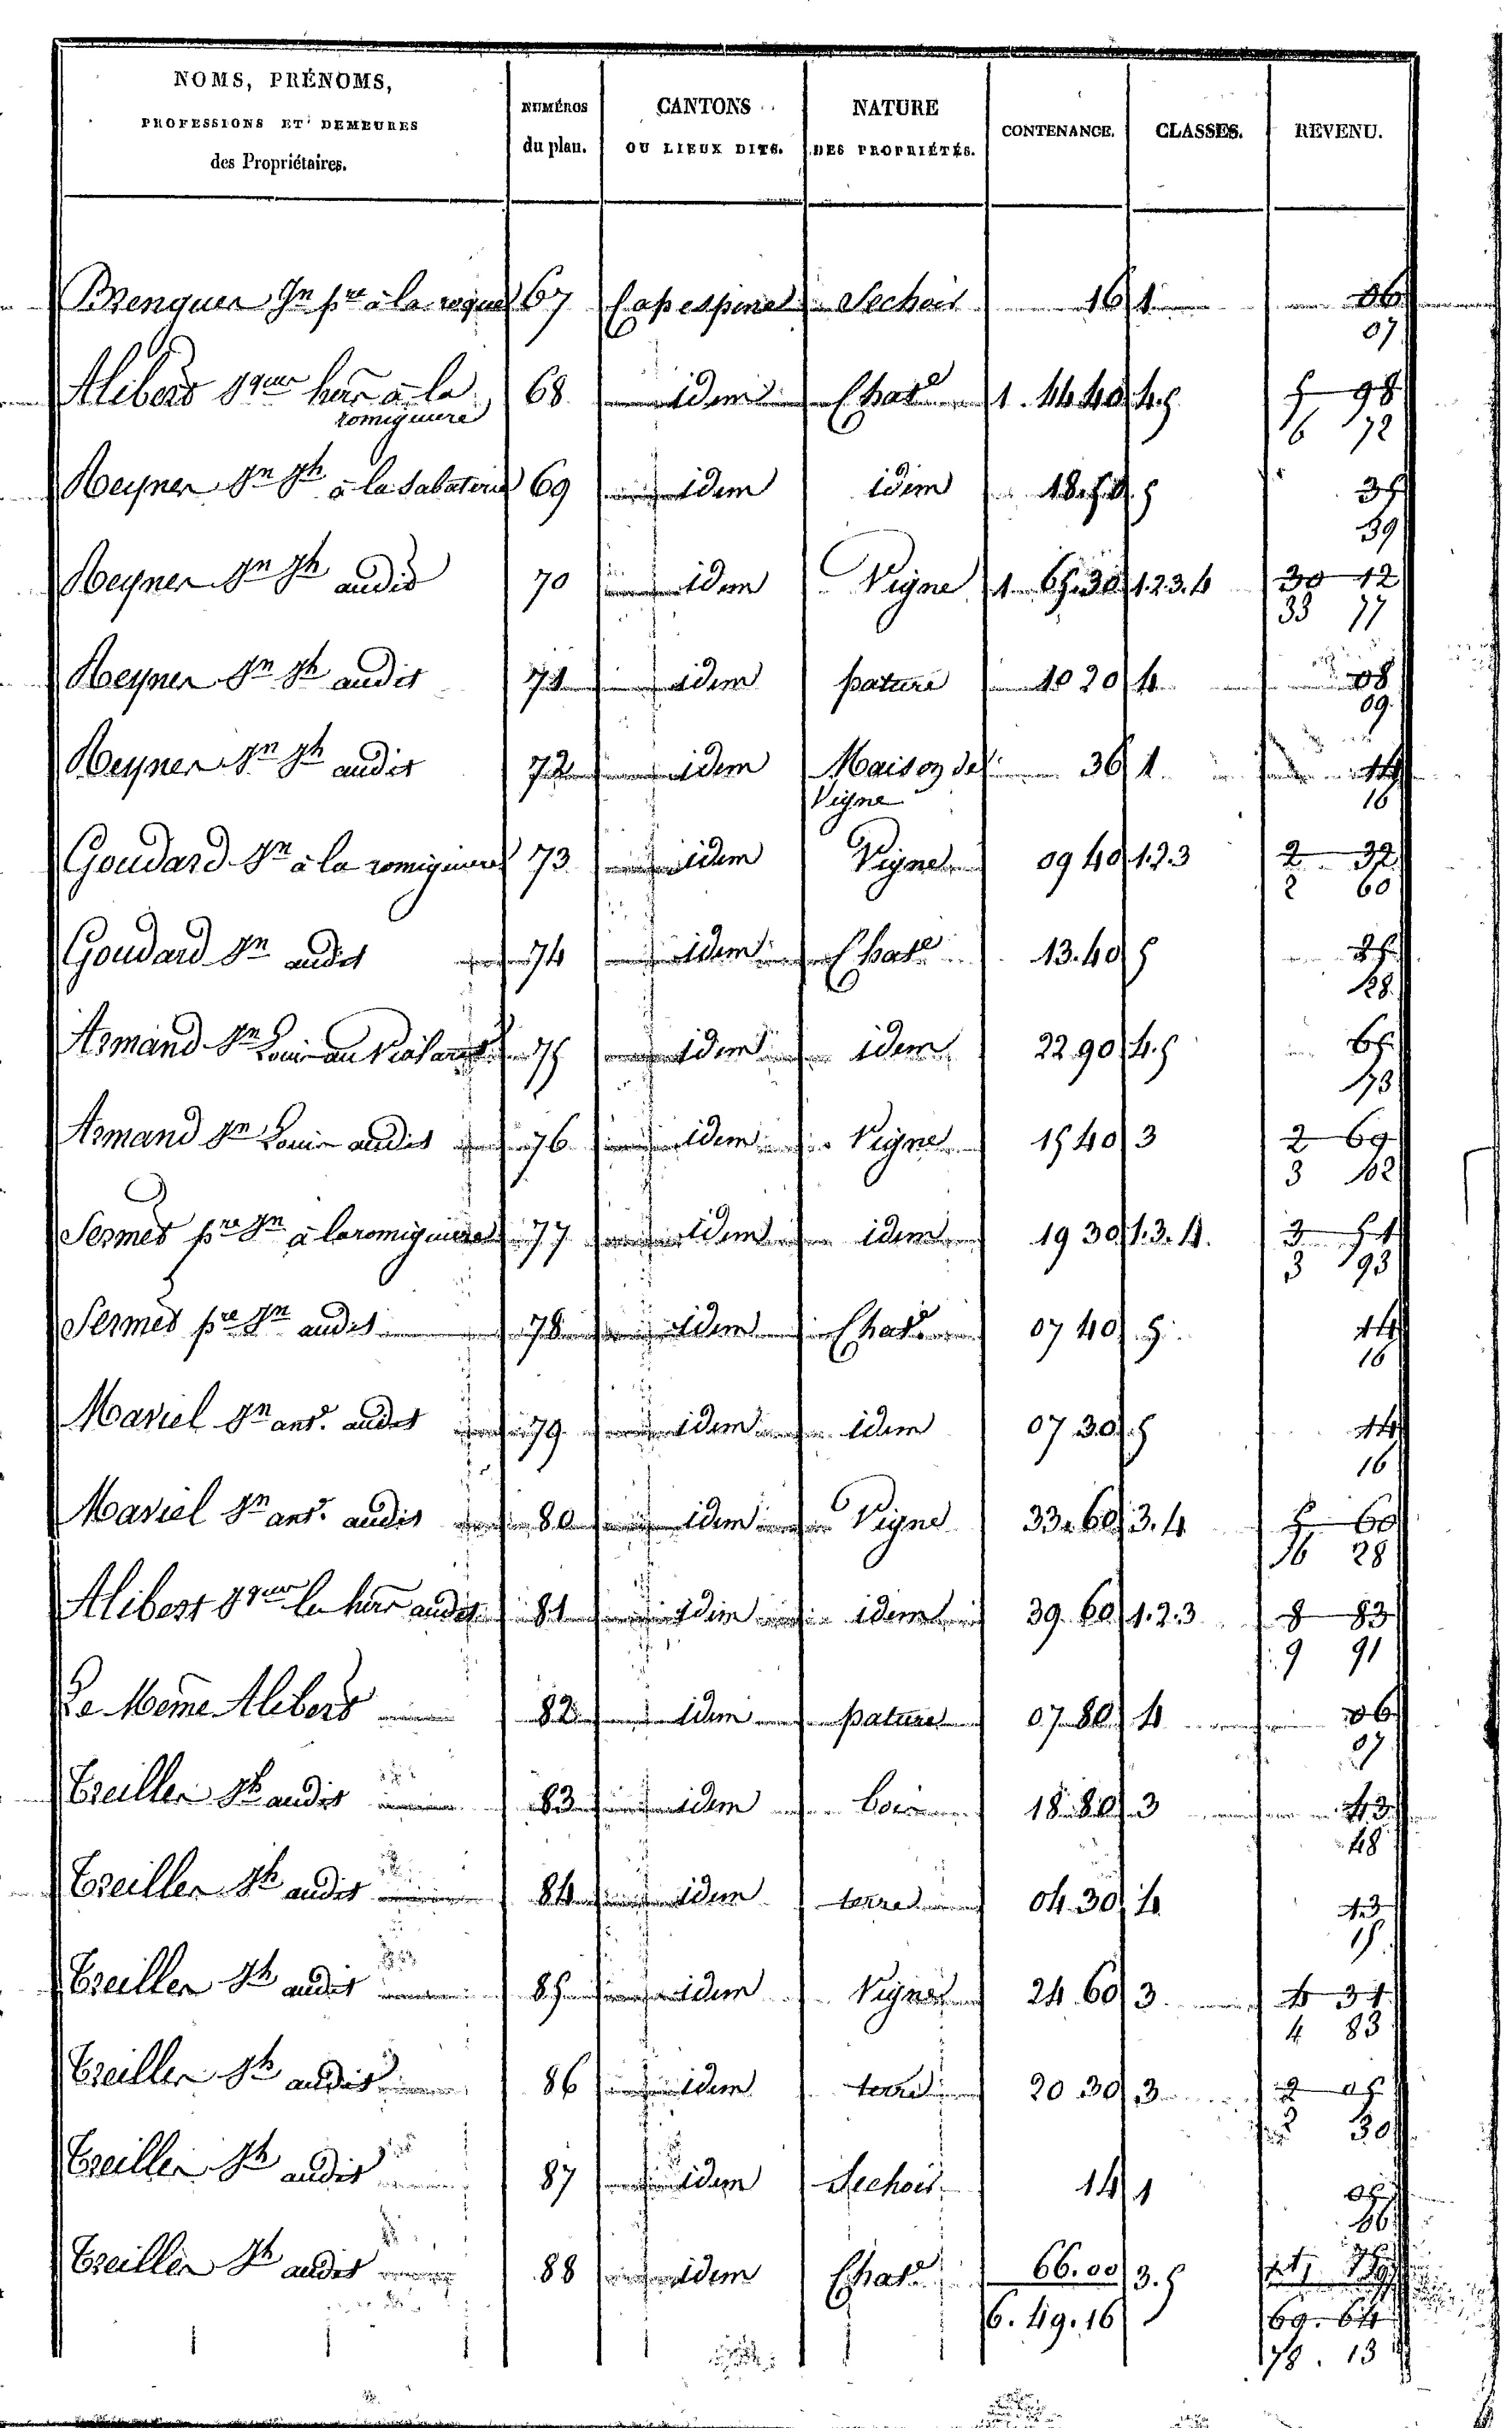 NOMS, PRÉNOMS, PROFESSIONS ET DEMEURES des Propriétaires. NUMÉROS du plan. CANTONS OU LIEUX DITS. NATURE DES PROPRIÉTÉS. CONTENANCE. CLASSES. REVENU.
Jn pre à la 67 Capespine Sechoir 16 1 06
07
Alibert à la 68 idem Chatre 1. 44 40 4.5 5 98
romiguiere 6 72
Meyner Jn Jh à la Sabaterie 69 idem idem 18.50 5 35
39
Meyner Jn Jh audit 70 idem Vigne 1 65.30 1.2.3.4 30 12
33 77
Meyner Jn Jh audit 71 idem pature 10 20 4 08
09
Meyner Jn Jh audit 72 idem Maison de 36 1 14
Vigne 16
Goudard Jn à la romiguiere 73 idem Vigne 09 40 1.2.3 2 32
2 60
Goudard Jn audit 74 idem Chatre 13.40 5 25
28
Armand Jn Louis au 75 idem idem 22 90 4.5 65
73
Armand Jn Louis audit 76 idem Vigne 15 40 3 2 69
3 02
Sermet pre Jn à la romiguiere 77 idem idem 19 30 1.3.4. 3 51
3 93
Sermet pre Jn audit 78 idem Chatre 07 40 5 14
16
Maviel Jn ant. audit 79 idem idem 07 30 5 14
16
Maviel Jn ant. audit 80 idem Vigne 33.60 3.4 5 60
6 28
Alibert audit 81 idem idem 39.60 1.2.3 8 83
9 91
Le Meme Alibert 82 idem pature 07 80 4 06
07
Treiller Jh audit 83 idem bois 18 80 3 43
48
Treiller Jh audit 84 idem terre 04 30 4 13
15
Treiller Jh audit 85 idem Vigne 24.60 3 4 31
4 83
Treiller Jh audit 86 idem terre 20 30 3 2 05
2 30
Treiller Jh audit 87 idem Sechoir 14 1 05
06
Treiller Jh audit 88 idem Chatre 66.00 3.5
6.49.16 69.64
78.13